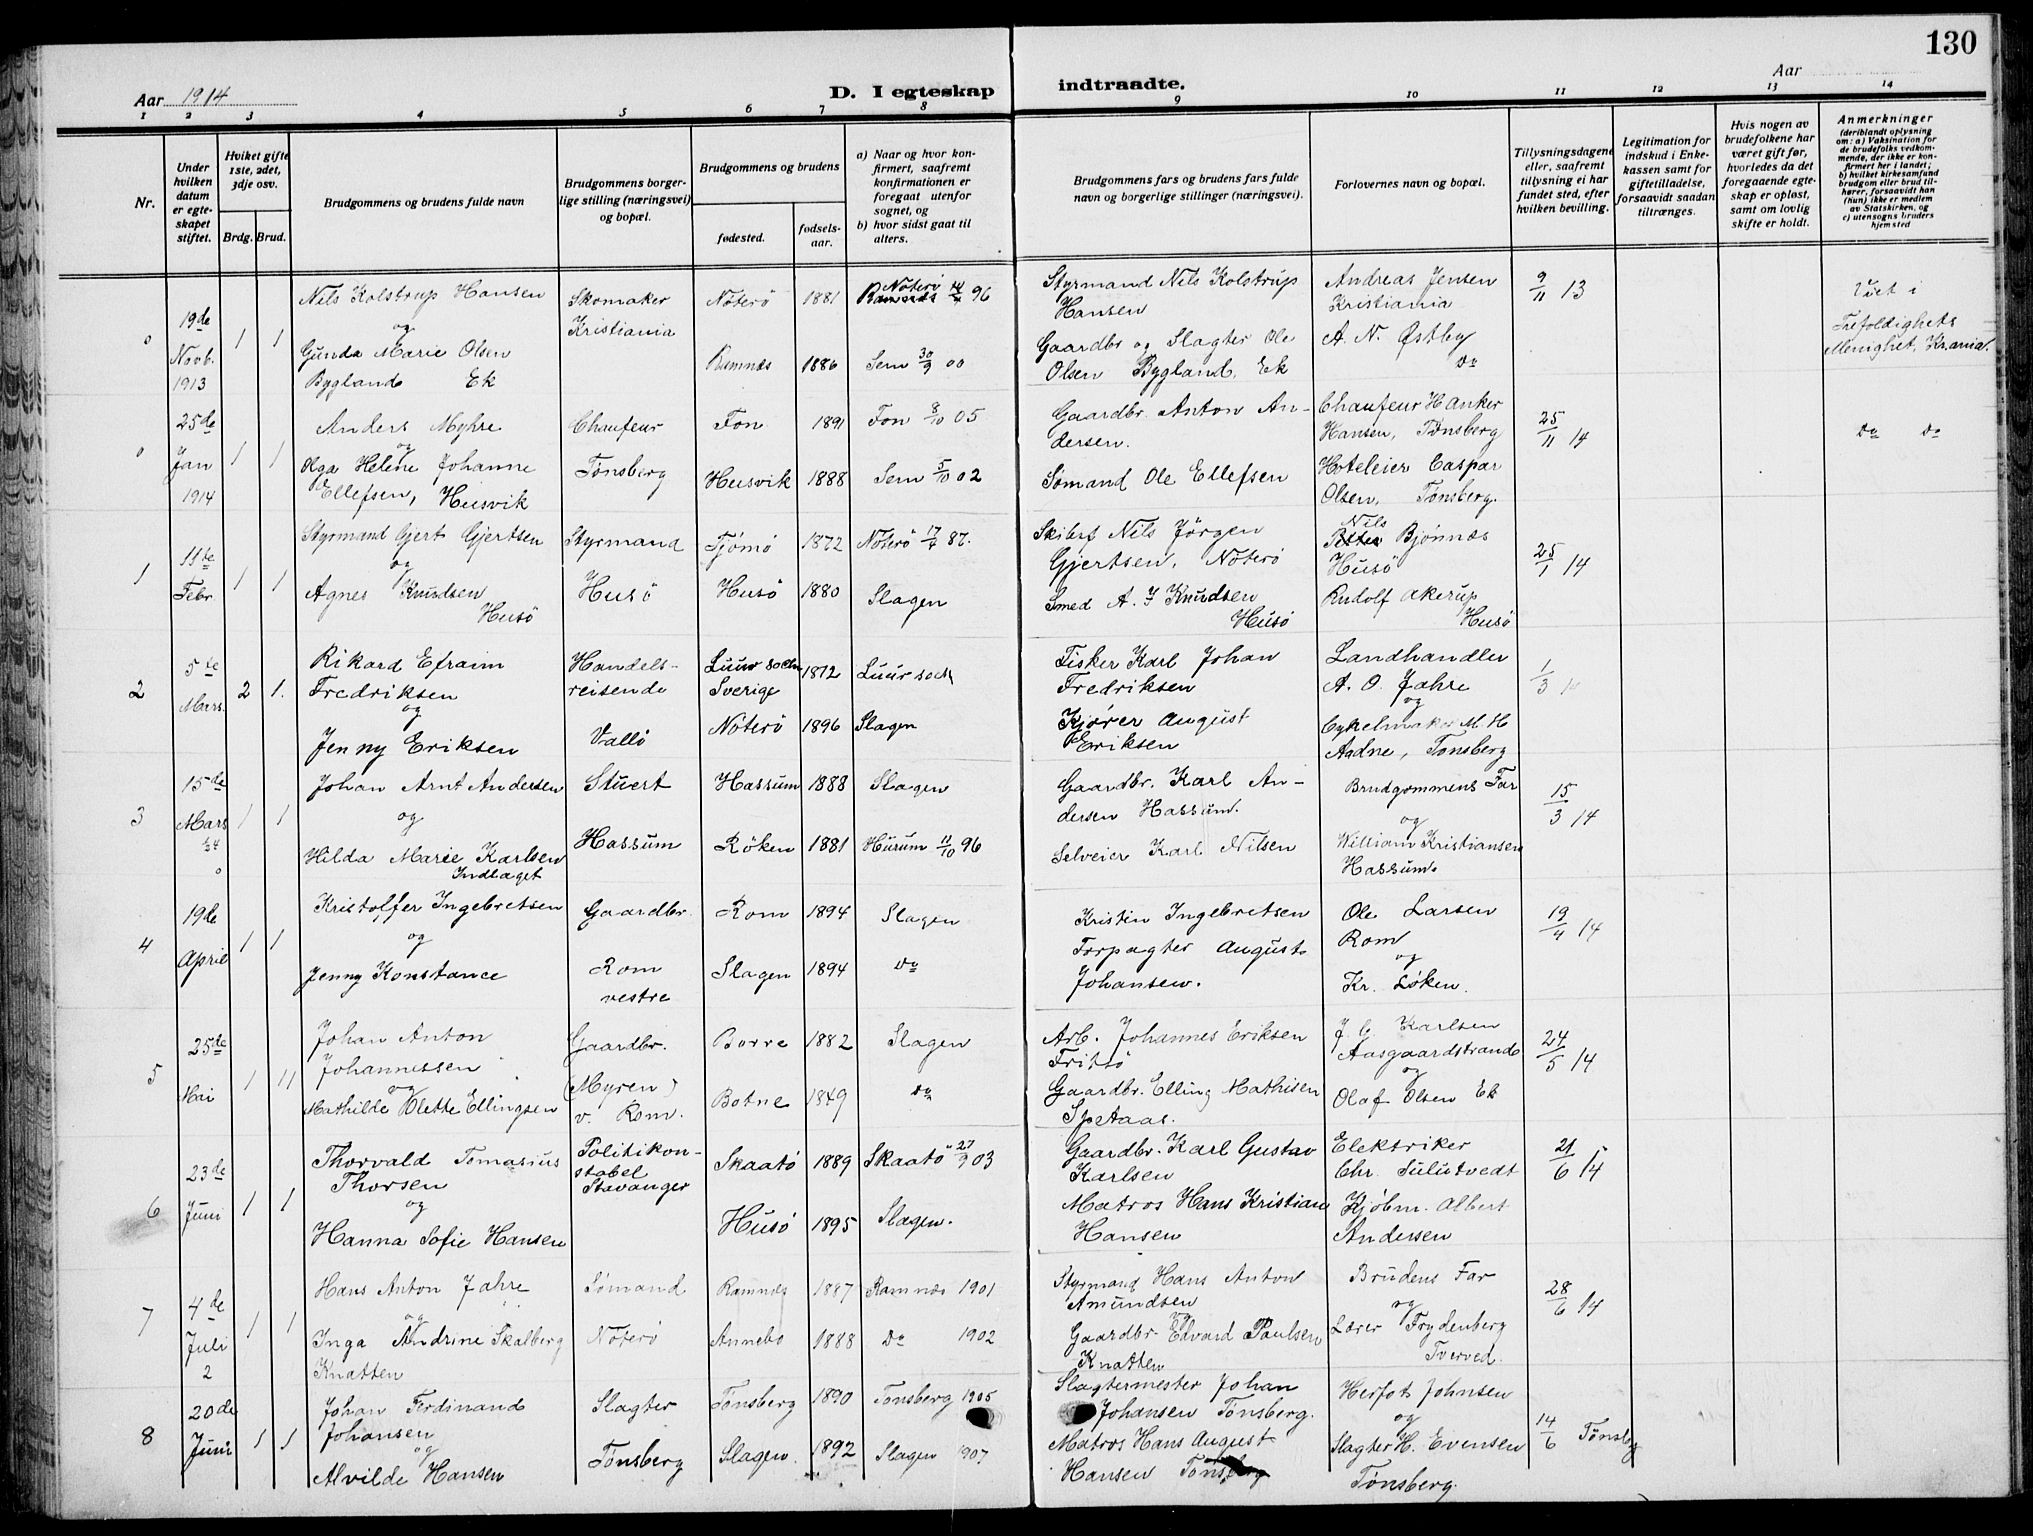 130
Aar 1914
D. I egteskap indtraadte.
Aar
1 2 3 4 5 6 7 8 9 10 11 12 13 14
Nr.
Under hvilken datum er egteskapet stiftet.
Hvilket gifte 1ste, 2det, 3dje osv.
Brdg. Brud.
Brudgommens og brudens fulde navn
Brudgommens borgerlige stilling (næringsvei) og bopæl.
Brudgommens og brudens
fødested.
fødselsaar.
a) Naar og hvor konfirmert, saafremt konfirmationen er foregaat utenfor sognet, og
b) hvor sidst gaat til alters.
Brudgommens fars og brudens fars fulde navn og borgerlige stillinger (næringsvei).
Forlovernes navn og bopæl.
Tillysningsdagene eller, saafremt tillysning ei har fundet sted, efter hvilken bevilling.
Legitimation for indskud i Enkekassen samt for giftetilladelse, forsaavidt saadan tiltrænges.
Hvis nogen av brudefolkene har været gift før, hvorledes da det foregaaende egteskap er opløst, samt om lovlig skifte er holdt.
Anmerkninger
(deriblandt oplysning om: a) Vaksination for de brudefolks vedkommende, der ikke er konfirmert her i landet; b) hvilket kirkesamfund brudgom eller brud tilhører, forsaavidt han (hun) ikke er medlem av Statskirken, og c) utensogns bruders hjemsted
0 19de Novb. 1913 1 1
Nils Kolstrup Hansen
og
Gunda Marie Olsen
Bygland Ek
Skomaker
Kristiania
Nøterö 1881 Nøterö 96
Ramnes 1886 Sem 30/9 00
Styrmand Nils Kolstrup
Hansen
Gaardbr og Slagter Ole
Olsen Bygland, Ek
Andreas Jensen
Kristiania
A. N. Østby
Do
9/11 13
Viet i
Trefoldigheds
Menighet, Kr.ania.
0 25de Jan 1914 1 1
Anders Myhre
og
Olga Helene Johanne
Ellefsen, Husvik
Chaufeur
Tønsberg
Fon 1891 Fon 8/10 05
Husvik 1888 Sem 5/10 02
Gaardbr. Anton An-
dersen.
Sømand Ole Ellefsen
Chaufeur Hanker
Hansen, Tønsberg
Hoteleier Caspar
Olsen, Tønsberg.
25/11 14
Do Do
1 11te Febr 1 1
Styrmand Gjert Gjertsen
og
Agnes Knudsen
Husö
Styrmand
Husö
Tjømö 1872 Nøterö 17/4 87.
Husö 1880 Slagen
Skibsf Nils Jörgen
Gjertsen, Nøterö
Smed A. J Knudsen
Husö
Nils
Petter Bjønnes
Husö
Rudolf Akerup
Husö
25/1 14
2 5te Mars. 2 1.
Rikard Efraim
Fredriksen
og
Jenny Eriksen
Handels-
reisende
Vallö
Luur socln
Sverige 1872 Luur sock
Nøterö 1896 Slagen
Fisker Karl Johan
Fredriksen
Kjører August
Eriksen
Landhandler
A. O. Jahre
og
Cykelmaker M. H
Aadne, Tønsberg
1/3 14
3 15de Mars 1 1
Johan Arnt Andersen
og
Hilda Marie Karlsen
Indlaget
Stuert
Hassum
Hassum 1888 Slagen
Røken 1881 Hurum 11/10 96
Gaardbr. Karl An-
dersen Hassum.
Selveier Karl Nilsen
Brudgommens Far
og
William Kristiansen
Hassum.
15/3 14
4 19de April 1 1
Kristoffer Ingebretsen
og
Jenny Konstance
Gaardbr.
Rom
vestre
Rom 1894 Slagen
Slagen 1894 Do
Kristin Ingebretsen
Forpagter August
Johansen.
Ole Larsen
Rom
og
Kr. Løken.
19/4 14
5 25de Mai 1 11
Johan Anton
Johannessen
og
Mathilde Olette Ellingsen
Gaardbr.
(Myren)
v. Rom.
Borre 1882 Slagen
Botne 1849 Do
Arb. Johannes Eriksen
Fritsö
Gaardbr. Elling Mathisen
Spetaas.
J. C. Karlsen
Aasgaardstrand
og
Olaf Olsen Ek
24/5 14
6 23de Juni 1 1
Thorvald Tomasius
Thorsen
og
Hanna Sofie Hansen
Politikon-
stabel
Stavanger
Skaatö 1889 Skaatö 27/9 03
Husö 1895 Slagen.
Gaardbr. Karl Gustav
Karlsen
Matros Hans Kristian
Hansen
Elektriker
Chr. Sulutvedt
Kjøbm. Albert
Andersen
21/6 14
7 4de Juli 2 1 1
Hans Anton Jahre
og
Inga Andrine Skalberg
Knatten
Sømand
Nøterö
Ramnes 1887 Ramnes 1901
Annebo 1888 Do 1902
Styrmand Hans Anton
Amundsen
og
Gaardbr. Edvard Paulsen
Knatten
Brudens Far
og
Lærer Frydenberg
Tverved.
28/6 14
8 20de Juni 1 1
Johan Ferdinand
Johansen
og
Alvilde Hansen
Slagter
Tønsberg
Tønsberg 1890 Tønsberg 1905
Slagen 1892 Slagen 1907
Slagtermester Johan
Johansen Tønsberg.
Matros Hans August
Hansen Tønsberg
Herfot Johnsen
og
Slagter H. Evensen
Tønsberg.
14/6 Tønsbg